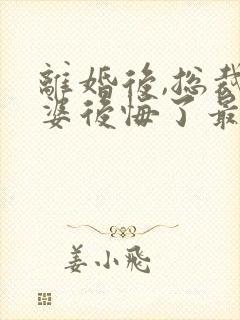 離婚後,总裁
婆後悔了最
姜小飛